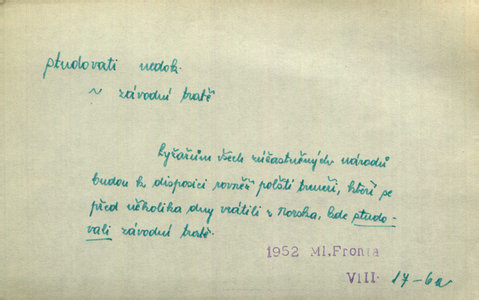 studovati nedok.
~ závodní tratě
Lyžařům všech zúčastněných národů
budou k disposici rovněž polští treneři, kteří se
před několika dny vrátili z Norska, kde studo-
vali závodní tratě.
1952 Ml.Fronta
VIII. 17-6a